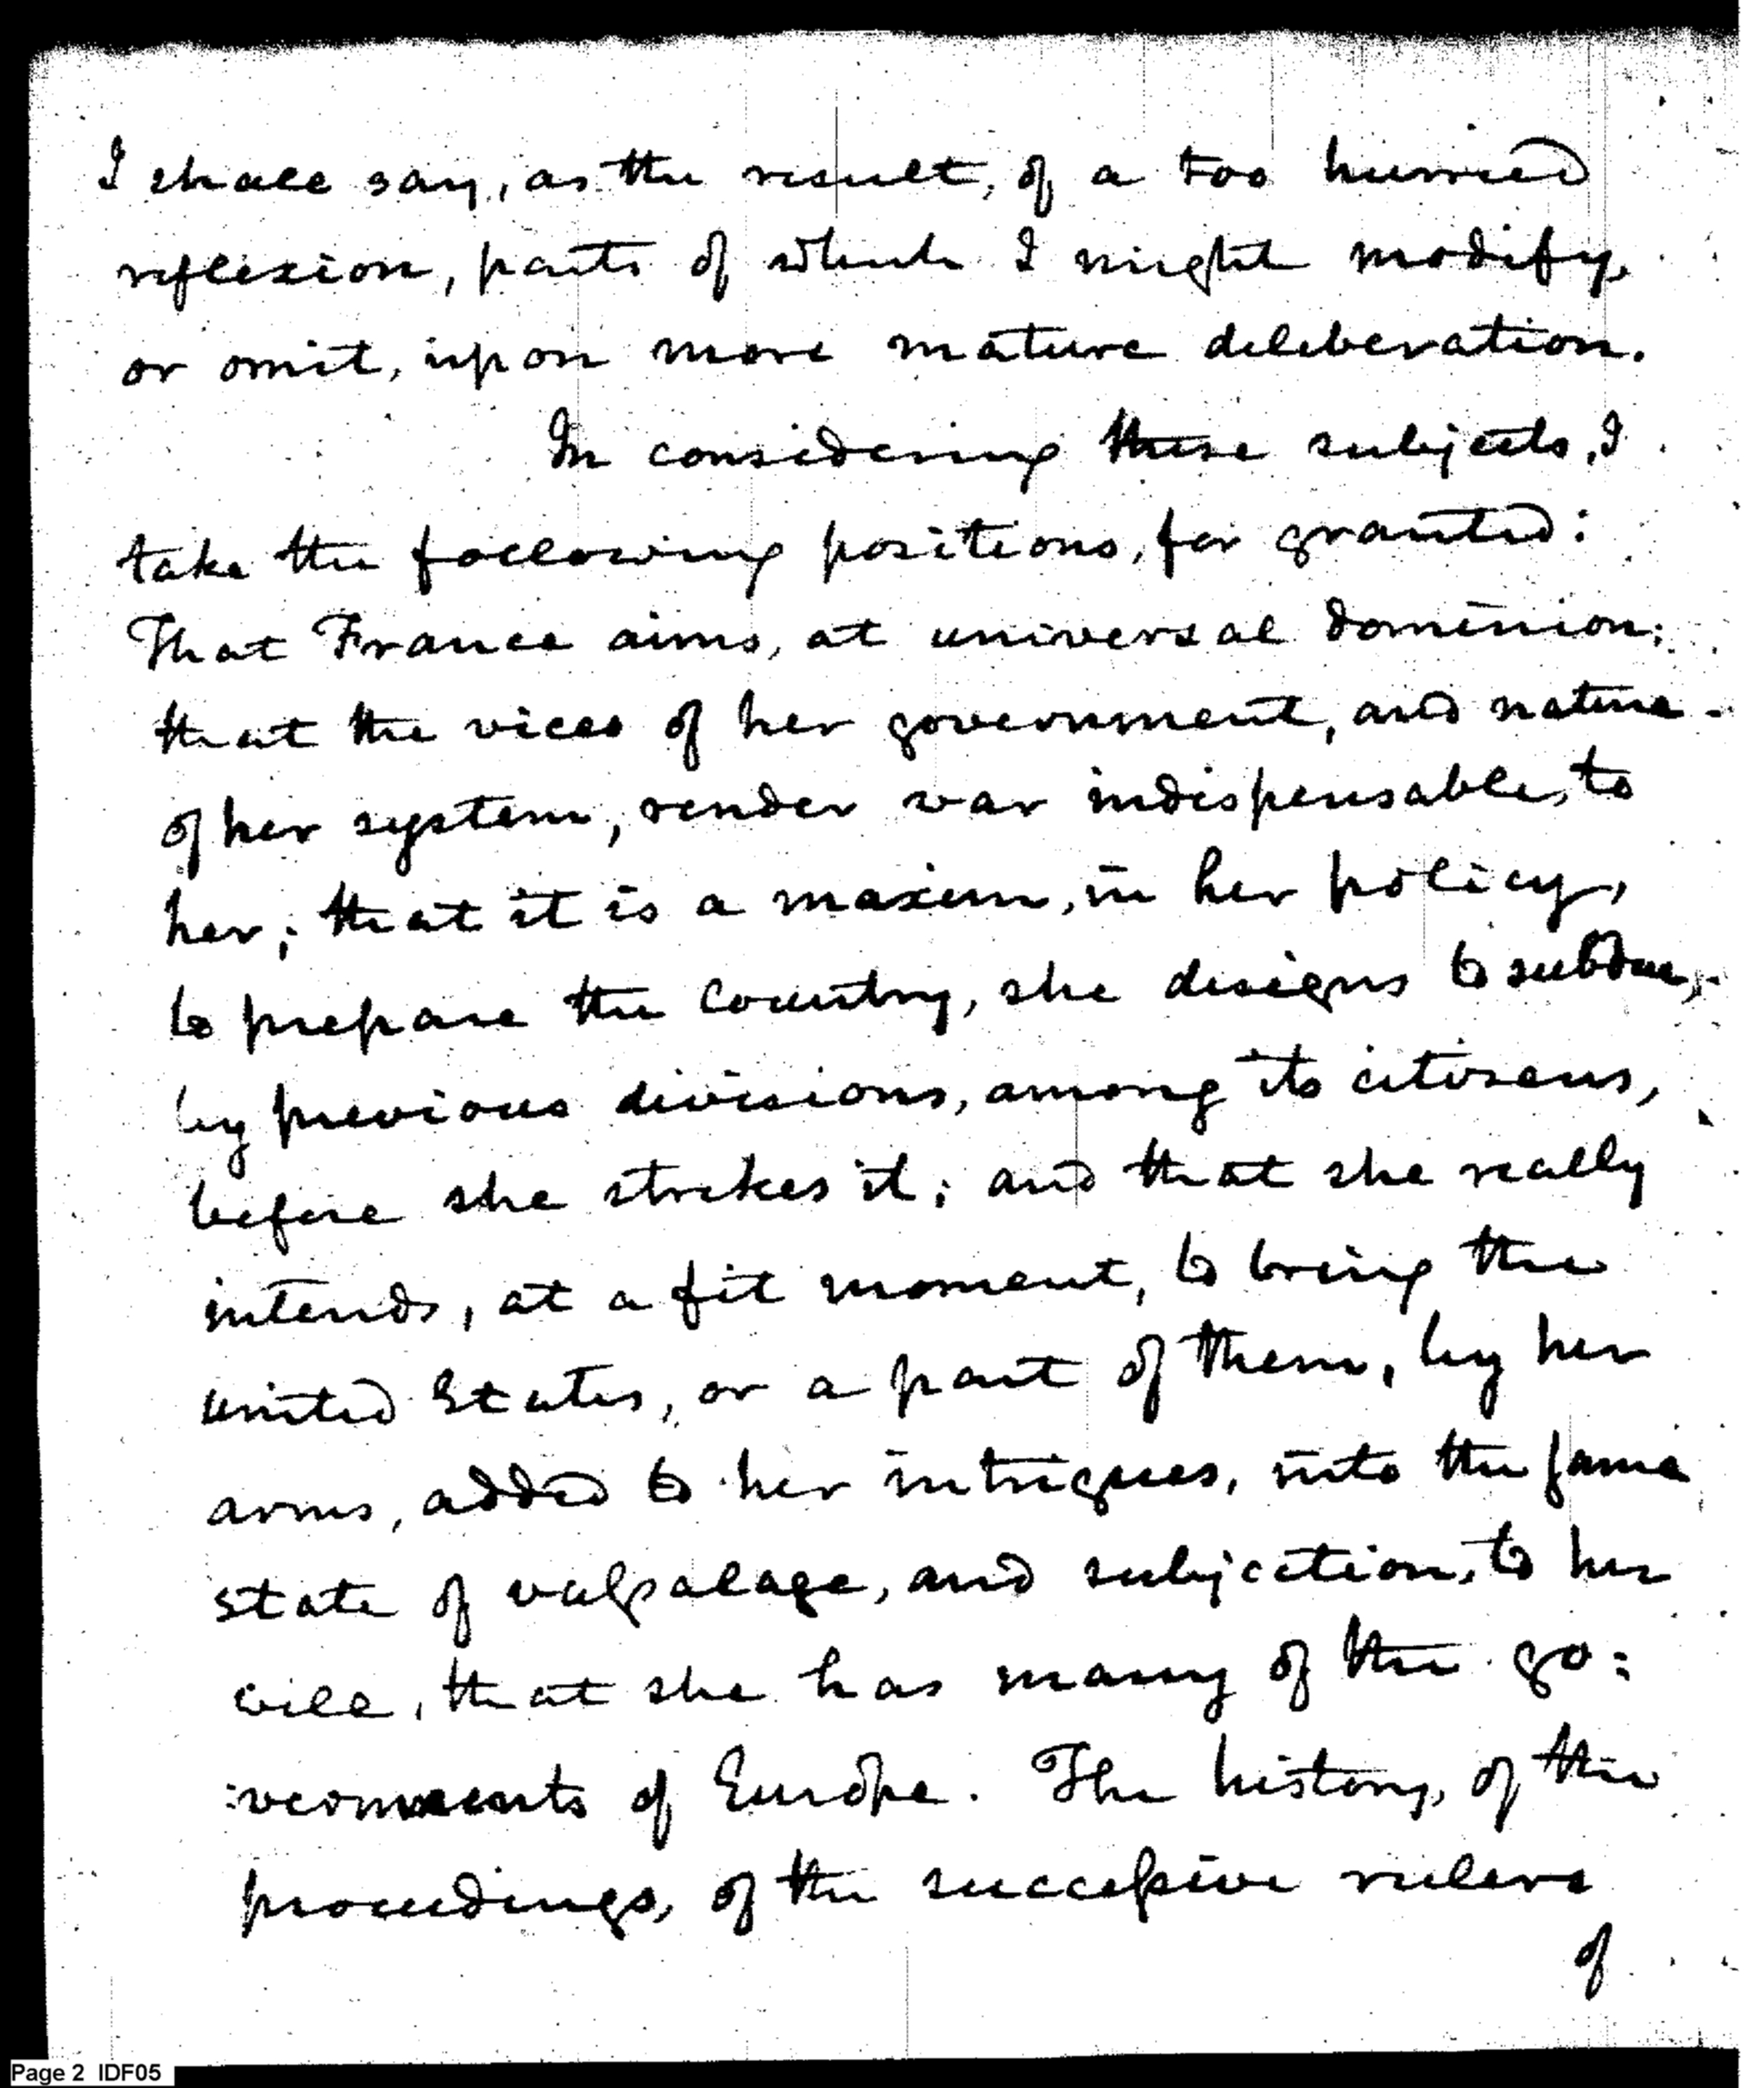 I shall say, as the result, of a too hurried
reflexion, parts of which I might modify,
or omit, upon more mature deliberation.
In considering these subjects, I
take the following positions, for granted:
That France aims, at universal dominion;
that the vices of her government, and nature
of her system, render war indispensable, to
her; that it is a maxim, in her policy,
to prepare the country, she designs to subdue,
by previous divisions, among its citizens,
before she strikes it; and that she really
intends, at a fit moment, to bring the
united States, or a part of them, by her
arms, added to her intrigues, into the same
state of vassalage, and subjection, to her
will, that she has many of the go:
:vernments of Europe. The history, of the
proceedings, of the successive rulers
of
Page 2 IDF05